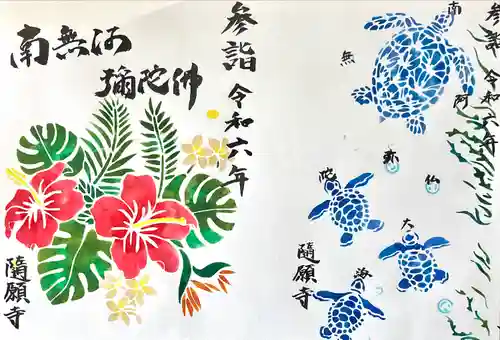 南無阿
彌陀佛
参詣
令和六年
隨願寺
南
無
阿
弥
陀
仏
大
海
参詣
令和六年
隨願寺